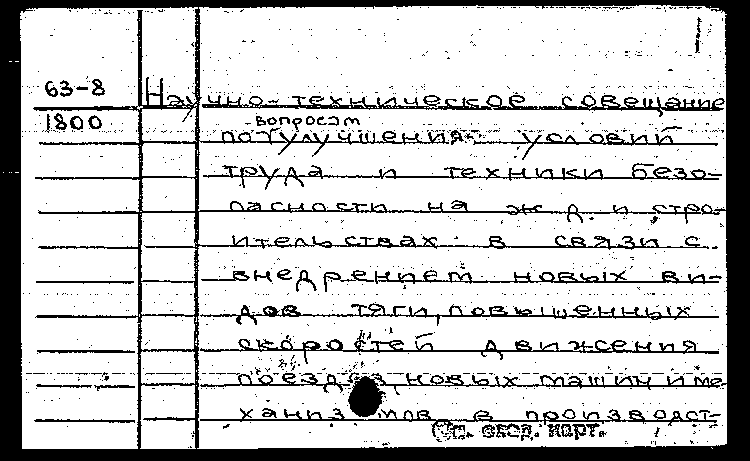 63-8 Научно-техническое совещание
1800
вопросам
по улучшения условий
труда и техники безо-
пасности на ж.д. и стро-
ительствах в связи с
внедрением новых ви-
дов тяги, повышенных
скоростей движения
поездов, новых машин и ме
ханизмов в производст-
См. след. карт.